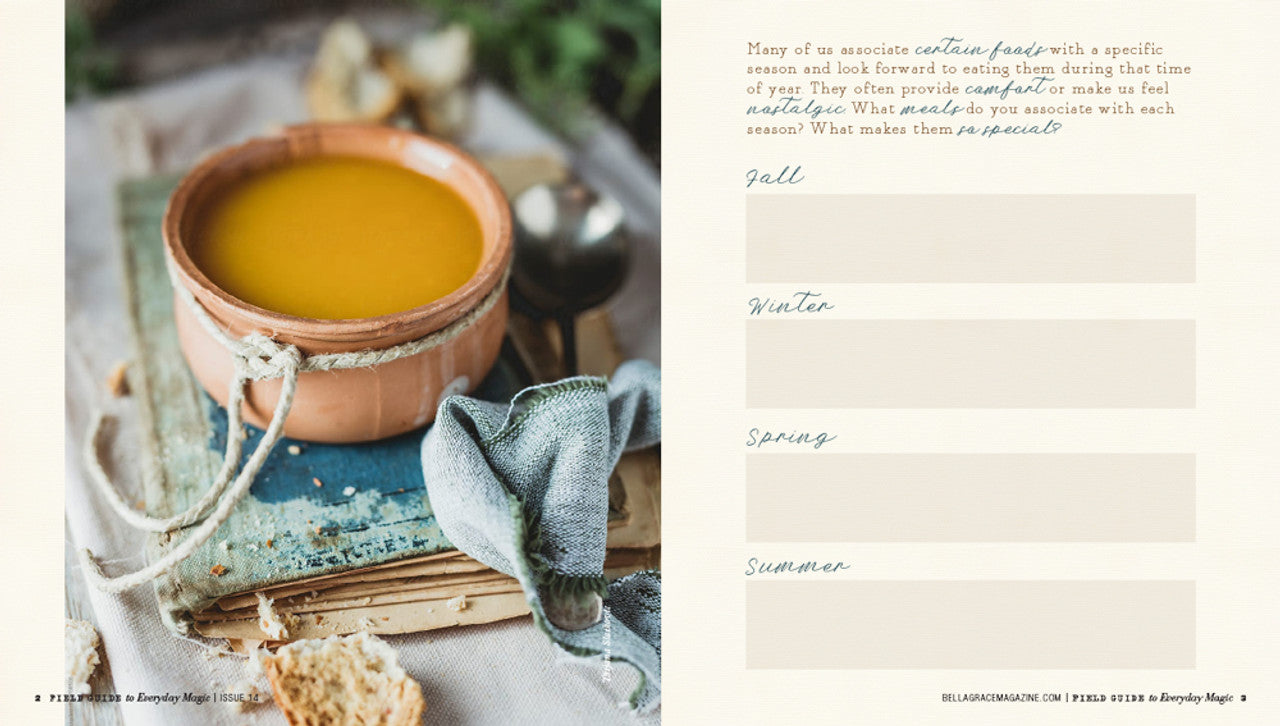 Many of us associate certain foods with a specific
season and look forward to eating them during that time
of year. They often provide comfort or make us feel
nostalgic. What meals do you associate with each
season? What makes them so special?
Fall
Winter
Spring
Summer
2 FIELD GUIDE to Everyday Magic | ISSUE 14
BELLAGRACEMAGAZINE.COM | FIELD GUIDE to Everyday Magic 3